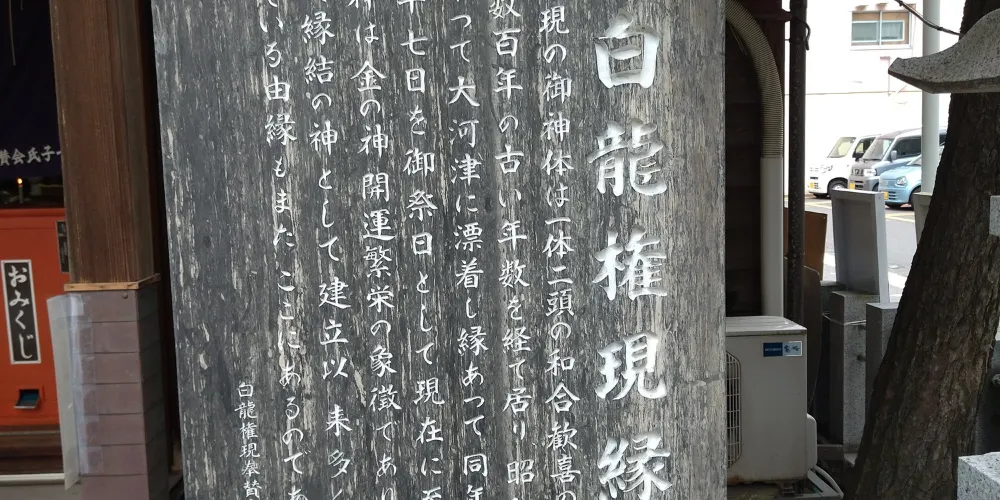 白龍権現縁
現の御神体は一体二頭の和合歓喜の
数百年の古い年数を経て居り 昭
って大河津に漂着し縁あって同年
十七日を御祭日として現在に至
は金の神開運繁栄の象徴であり
縁結の神として建立以来多く
いる由縁もまたここにあるのであ
白龍権現奉賛
おみくじ
賛会氏子一